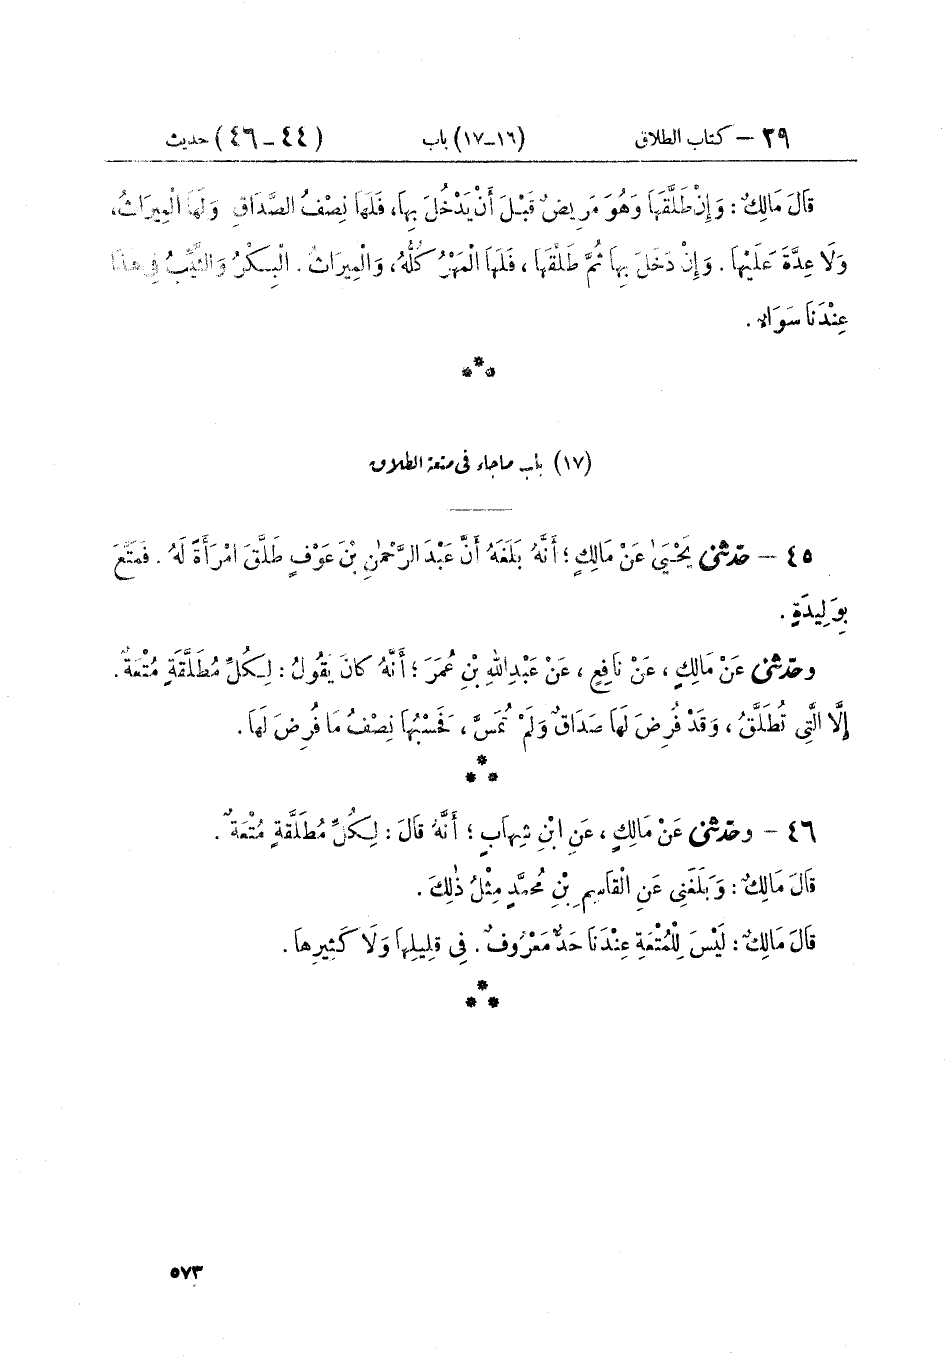 ٢٩ – كتاب الطلاق (١٦–١٧) باب (٤٤–٤٦) حديث
قَالَ مَالِكٌ : وَإِنْ طَلَّقَهَا وَهُوَ مَرِيضٌ قَبْلَ أَنْ يَدْخُلَ بِهَا، فَلَهَا نِصْفُ الصَّدَاقِ وَلَهَا الْمِيرَاثُ،
وَلَا عِدَّةَ عَلَيْهَا . وَإِنْ دَخَلَ بِهَا ثُمَّ طَلَّقَهَا ، فَلَهَا الْمَهْرُ كُلُّهُ، وَالْمِيرَاثُ . الْبِكْرُ وَالثَّيِّبُ فِي هٰذَا
عِنْدَنَا سَوَاءٌ .
***
(١٧) باب ماجاء فى متعة الطلاق
٤٥ – حدّثنى يَحْيَىٰ عَنْ مَالِكٍ ؛ أَنَّهُ بَلَغَهُ أَنَّ عَبْدَ الرَّحْمٰنِ بْنَ عَوْفٍ طَلَّقَ امْرَأَةً لَهُ . فَمَتَّعَ
بِوَلِيدَةٍ .
وحدّثنى عَنْ مَالِكٍ ، عَنْ نَافِعٍ ، عَنْ عَبْدِ اللهِ بْنِ عُمَرَ ؛ أَنَّهُ كَانَ يَقُولُ : لِكُلِّ مُطَلَّقَةٍ مُتْعَةٌ .
إِلَّا الَّتِي تُطَلَّقُ ، وَقَدْ فُرِضَ لَهَا صَدَاقٌ وَلَمْ تُمَسَّ ، فَحَسْبُهَا نِصْفُ مَا فُرِضَ لَهَا .
***
٤٦ – وحدّثنى عَنْ مَالِكٍ ، عَنِ ابْنِ شِهَابٍ ؛ أَنَّهُ قَالَ : لِكُلِّ مُطَلَّقَةٍ مُتْعَةٌ .
قَالَ مَالِكٌ : وَبَلَغَنِي عَنِ الْقَاسِمِ بْنِ مُحَمَّدٍ مِثْلُ ذٰلِكَ .
قَالَ مَالِكٌ : لَيْسَ لِلْمُتْعَةِ عِنْدَنَا حَدٌّ مَعْرُوفٌ . فِي قَلِيلِهَا وَلَا كَثِيرِهَا .
***
٥٧٣